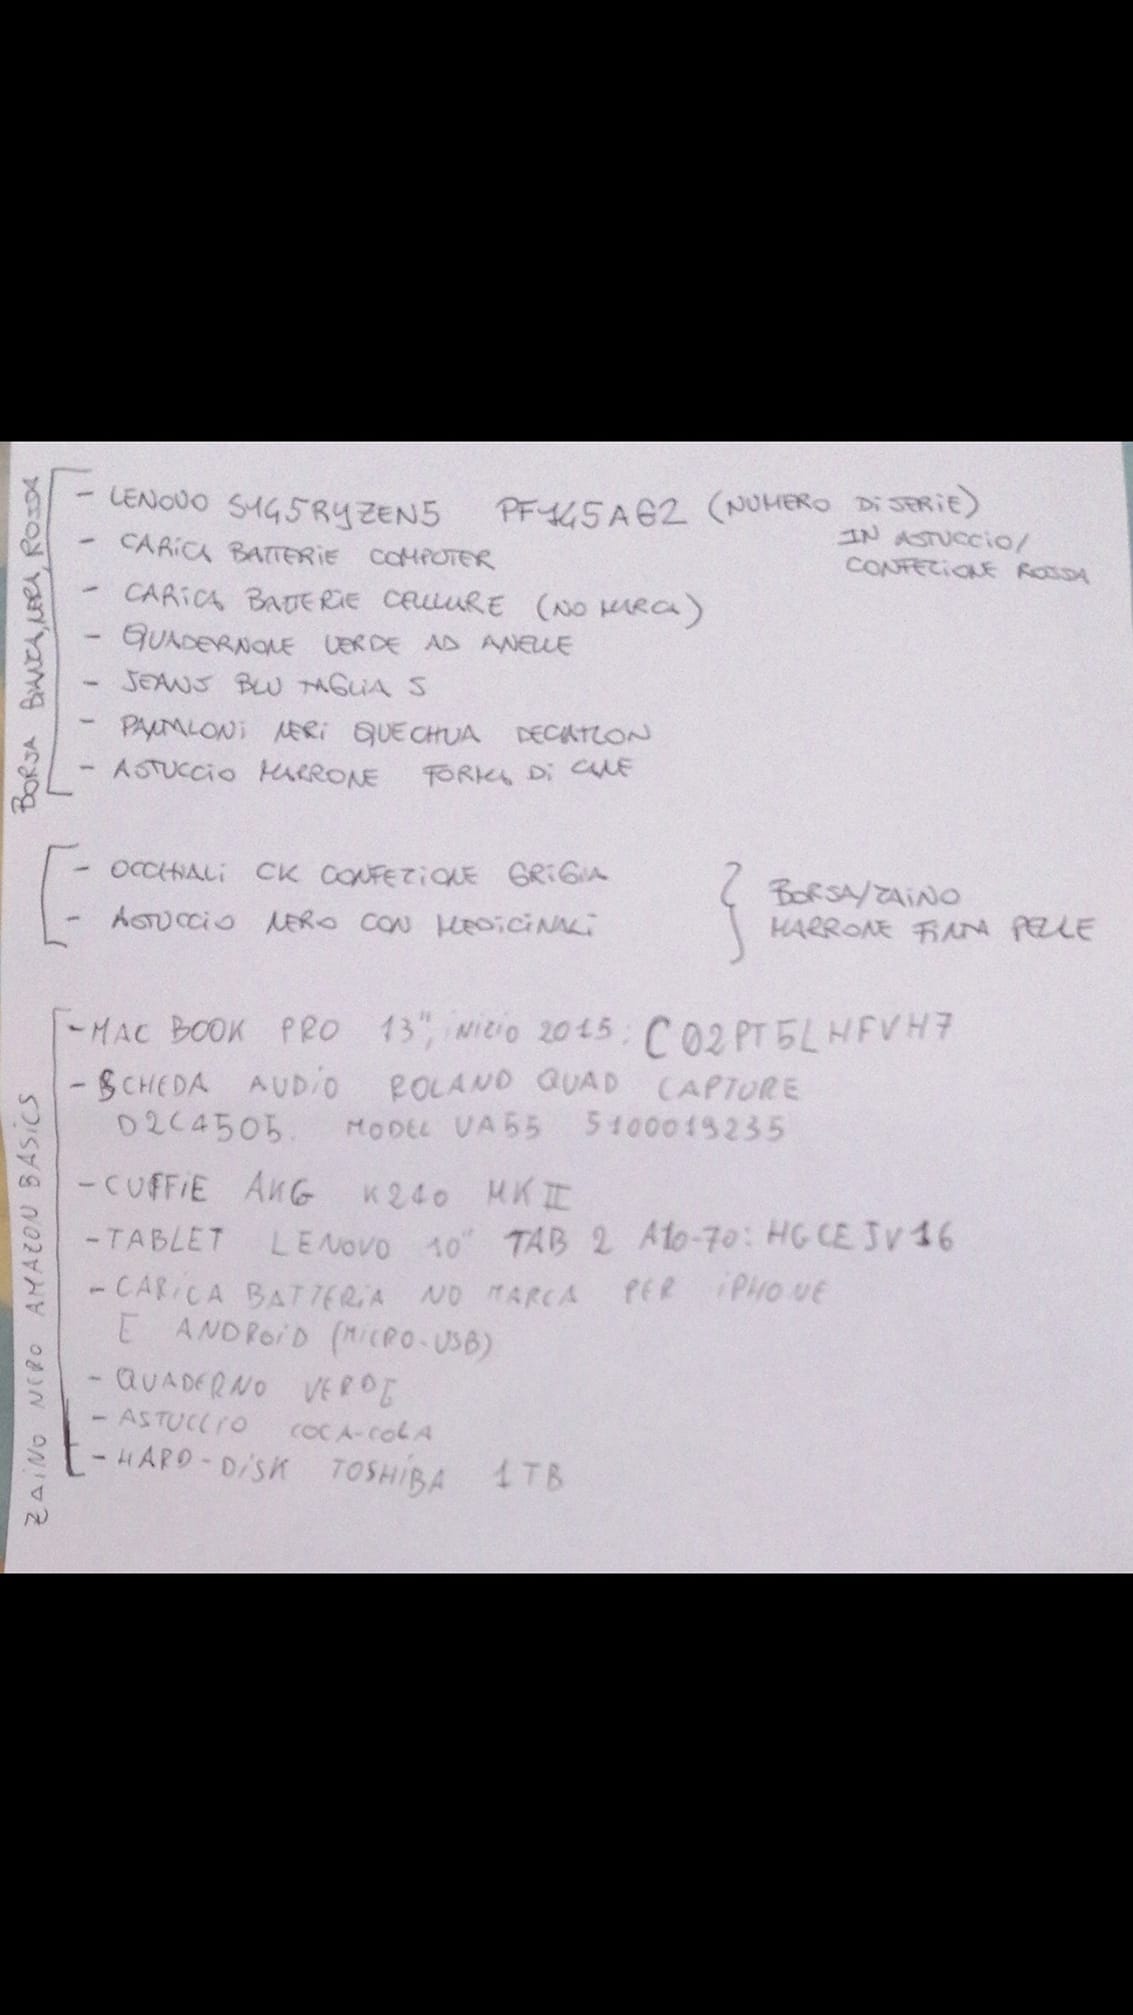 BORSA BIANCA, NERA, ROSSA
- LENOVO S145RYZEN5 PF145AG2 (NUMERO DI SERIE)
IN ASTUCCIO/
CONFEZIONE ROSSA
- CARICA BATTERIE COMPUTER
- CARICA BATTERIE CELLURE (NO MARCA)
- QUADERNONE VERDE AD ANELLE
- JEANS BLU TAGLIA S
- PANTALONI NERI QUECHUA DECATLON
- ASTUCCIO MARRONE FORMA DI CANE
- OCCHIALI CK CONFEZIONE GRIGIA
- ASTUCCIO NERO CON MEDICINALI
BORSA/ZAINO
MARRONE FINTA PELLE
ZAINO NERO AMAZON BASICS
- MAC BOOK PRO 13", INIZIO 2015: C02PT5LHFVH7
- SCHEDA AUDIO ROLAND QUAD CAPTURE
D2C4505. MODEL UA55 S100019235
- CUFFIE AKG K240 MKII
- TABLET LENOVO 10" TAB 2 A10-70: HGCEJV16
- CARICA BATTERIA NO MARCA PER IPHONE
E ANDROID (MICRO-USB)
- QUADERNO VERDE
- ASTUCCIO COCA-COLA
- HARD-DISK TOSHIBA 1TB